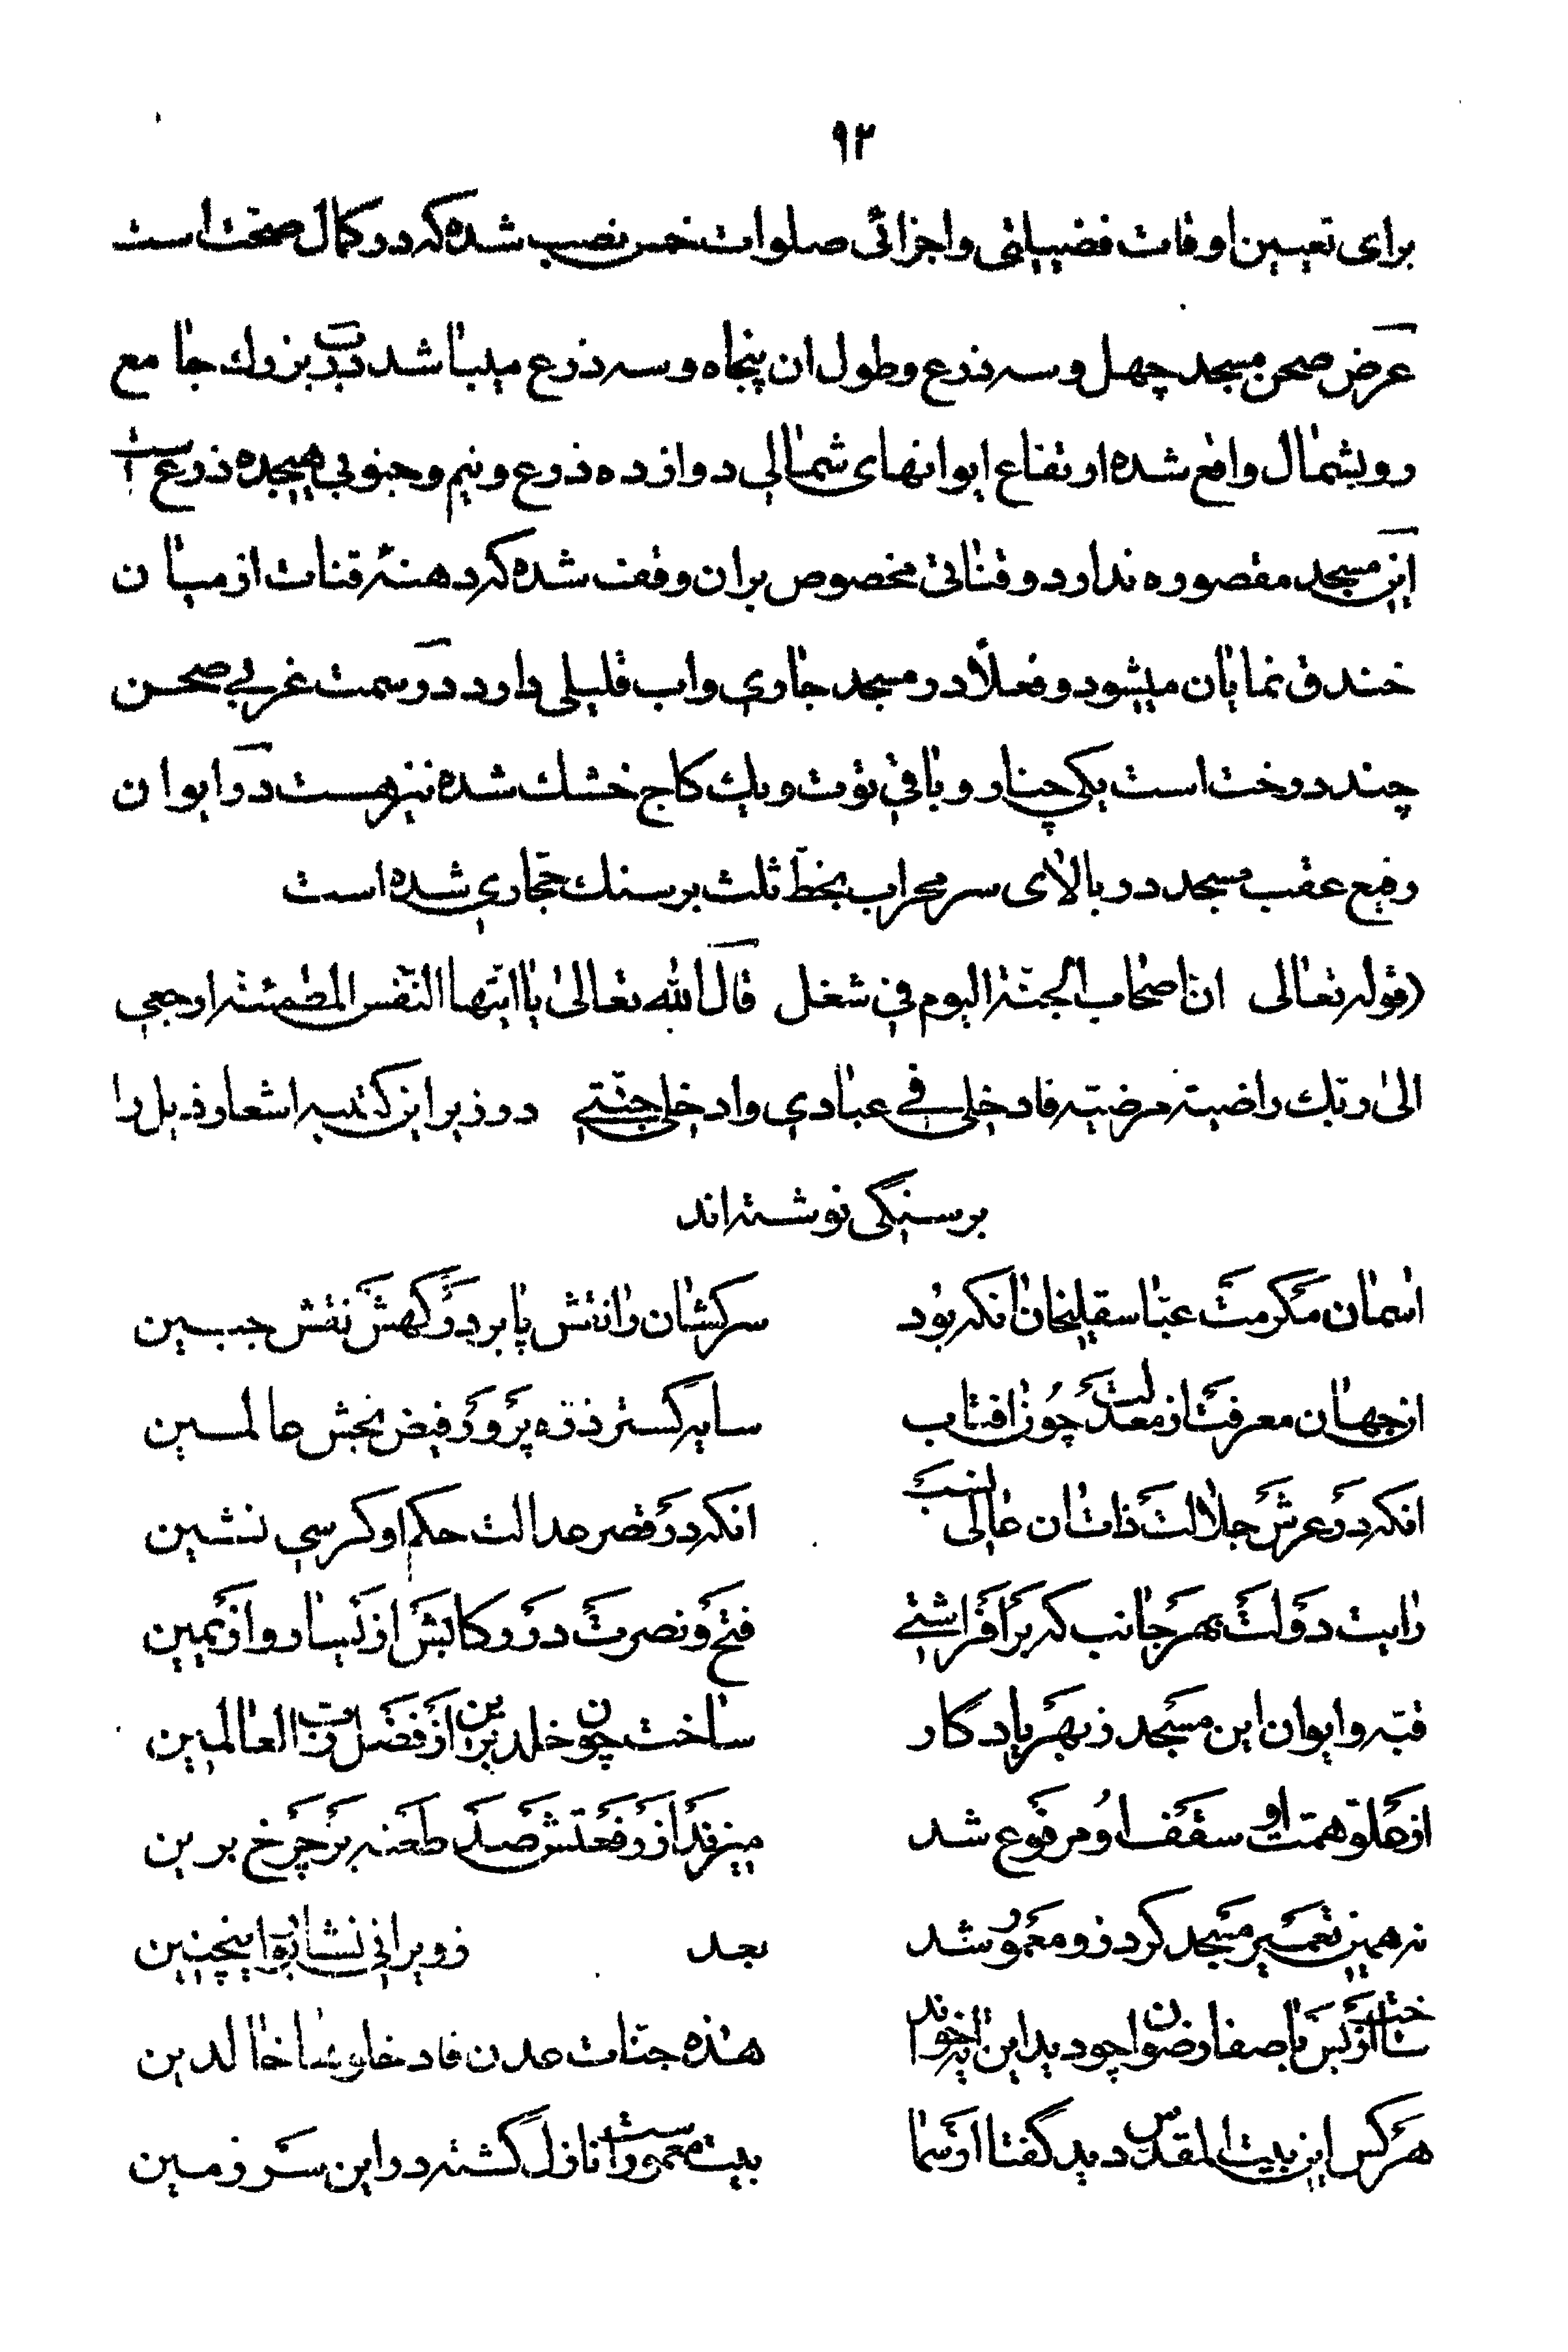 ۹۲
برای تعیین اوقات فضیلتی و اجزائی صلوات خمس نصب شده که در کمال صحّت است
عرض صحن مسجد چهل و سه ذرع و طول ان پنجاه و سه ذرع میباشد درب بزرك جامع
رو بشمال واقع شده ارتفاع ایوانهای شمالی دوازده ذرع و نیم و جنوبی هیجده ذرع است
این مسجد مقصوره ندارد و قناتی مخصوص بران وقف شده که دهنهٔ قنات از میان
خندق نمایان میشود و فعلاً در مسجد جاری و اب قلیلی دارد در سمت غربی صحن
چند درخت است یکی چنار و باقی توت و یك کاج خشك شده نیز هست در ایوان
رفیع عقب مسجد در بالای سر محراب بخطّ ثلث بر سنك حجّاری شده است
(قوله تعالی انّ اصحاب الجنّة الیوم فی شغل قال الله تعالی یا ایتها النّفس المطمئنة ارجعی
الی ربّك راضیة مرضیّة فادخلی فی عبادی و ادخلی جنّتی در زیر این کتیبه اشعار ذیل را
بر سنگی نوشته اند
اسمان مکرمت عبّاسقلیخان انکه بود سرکشان را نقش پا بر درگهش نقش جبین
از جهان معرفت از معدلت چون افتاب سایه گستر ذرّه پرور فیض بخش عالمین
انکه در عرش جلالت ذات ان عالی نسب انکه در قصر عدالت حکم او کرسی نشین
رایت دولت بهر جانب که بر افراشتی فتح و نصرت در رکابش از یسار و از یمین
قبّه و ایوان این مسجد ز بهر یادگار ساخت چون خلد برین از فضل ربّ العالمین
از علوّ همّت او سقف او مرفوع شد میزند از رفعتش صد طعنه بر چرخ برین
نه همین تعمیر مسجد کرد زو معمور شد بعد زویرانی نشابور اینچنین
ساختش از بس باصفا رضوان چو دید این را بخواند هذه جنّات عدن فادخلوها خالدین
هر کس این بیت المقدس دید گفتا از سما بیت معمور است نازل گشته در این سرزمین